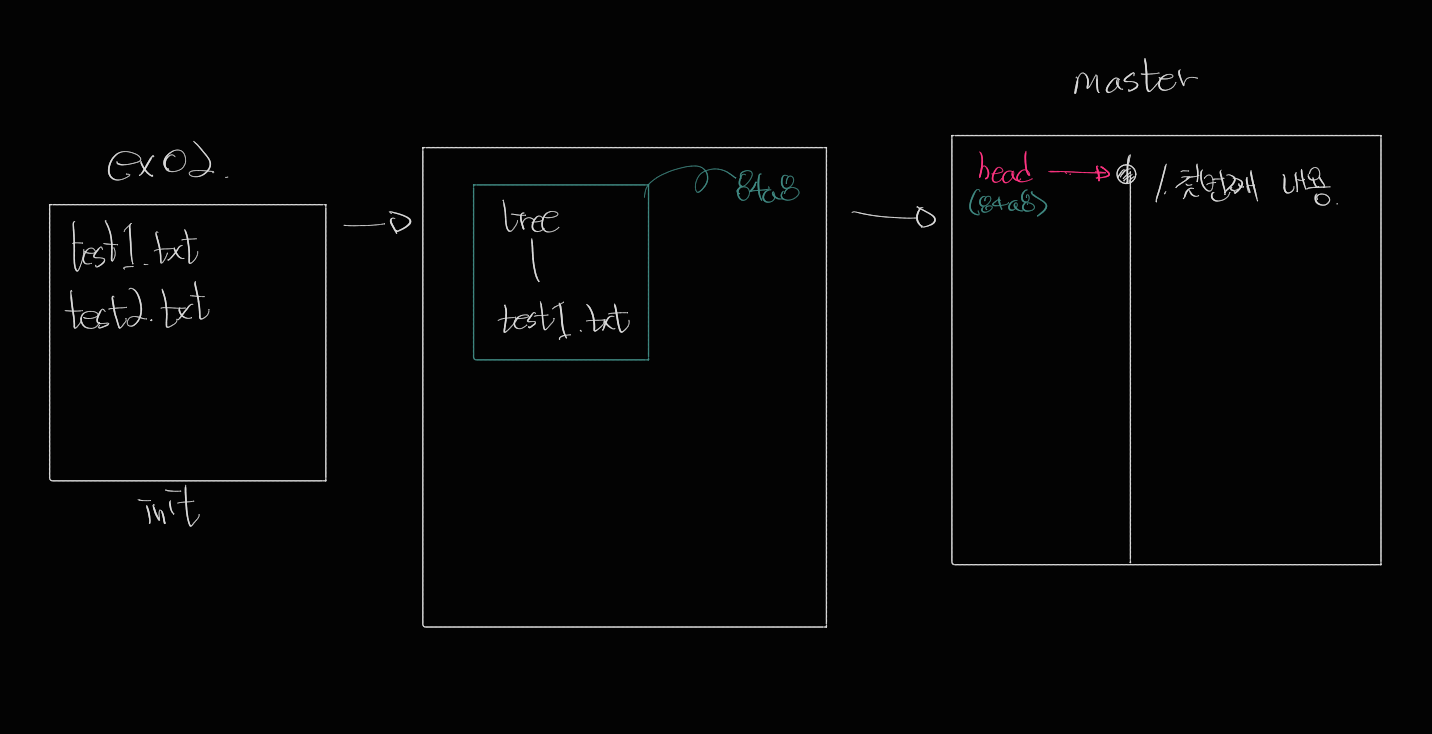 ex02.
test1.txt
test2.txt
init
tree
test1.txt
84a8
master
head
(84a8)
1. 첫번째 내용.